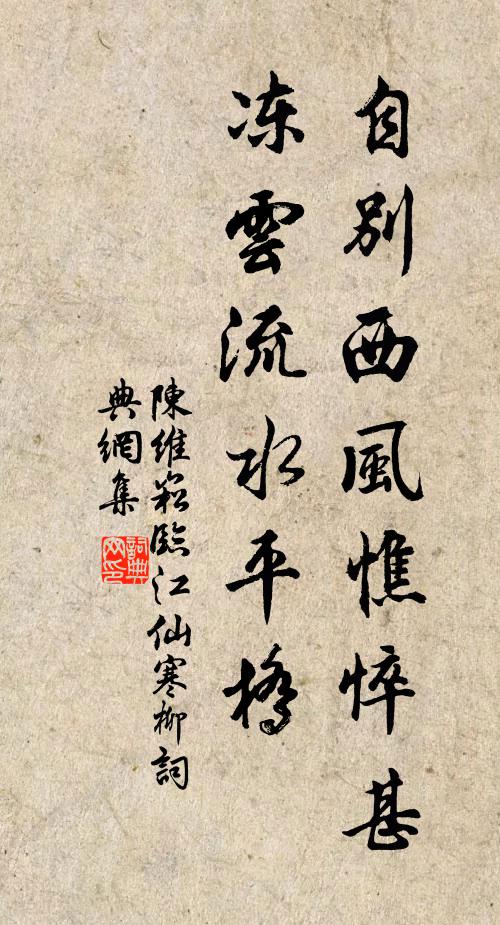 自別西風憔悴甚
凍雲流水平橋
陳維崧臨江仙寒柳詞
典網集
詞典网印